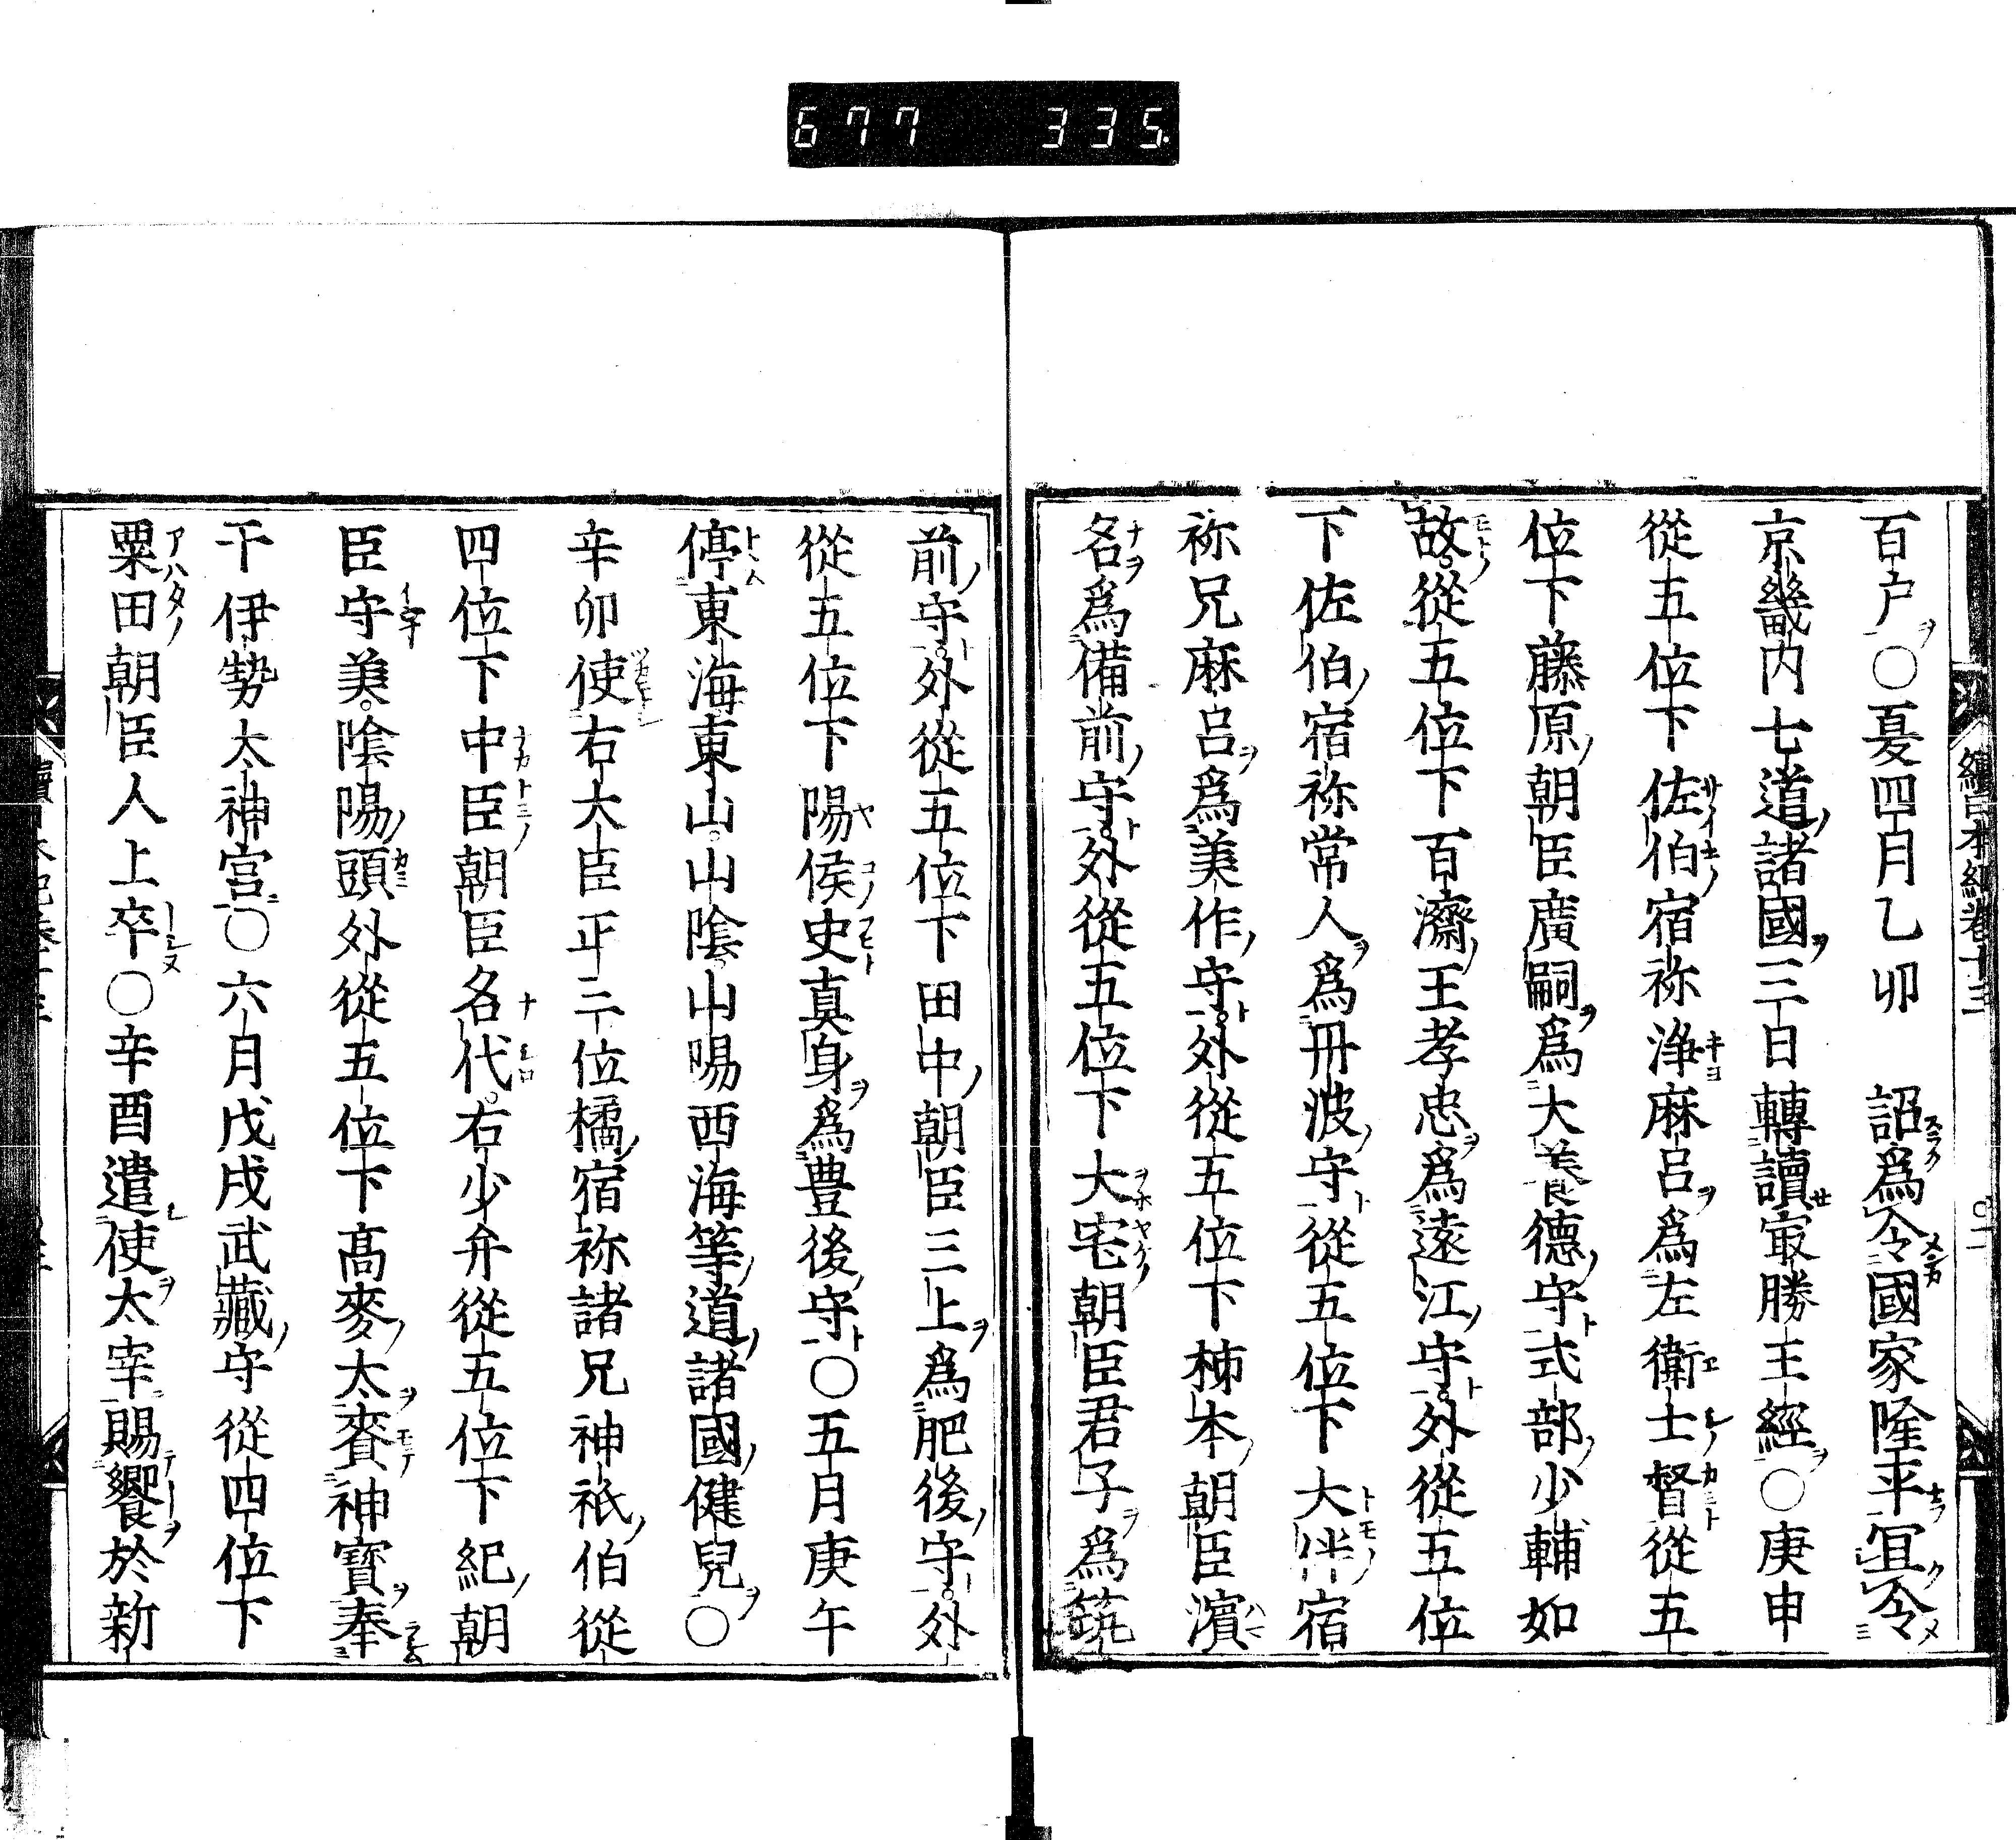 677 335
續日本紀卷十三
百户○夏四月乙卯 詔爲令國家隆平冝令
京畿内七道諸國三日轉讀㝡勝王經○庚申
從五位下佐伯宿祢淨麻呂爲左衛士督從五
位下藤原朝臣廣嗣爲大養德守式部少輔如
故從五位下百濟王孝忠爲遠江守外從五位
下佐伯宿祢常人爲丹波守從五位下大伴宿
祢兄麻呂爲美作守外從五位下柹本朝臣濱
名爲備前守外從五位下大宅朝臣君子爲筑
前守外從五位下田中朝臣三上爲肥後守外
從五位下陽侯史真身爲豊後守○五月庚午
停東海東山山陰山陽西海等道諸國健兒○
辛卯使右大臣正三位橘宿祢諸兄神祇伯從
四位下中臣朝臣名代右少弁從五位下紀朝
臣宇美陰陽頭外從五位下高麥太賷神寳奉
于伊勢太神宮○六月戊戌武藏守從四位下
粟田朝臣人上卒○辛酉遣使太宰賜饗於新